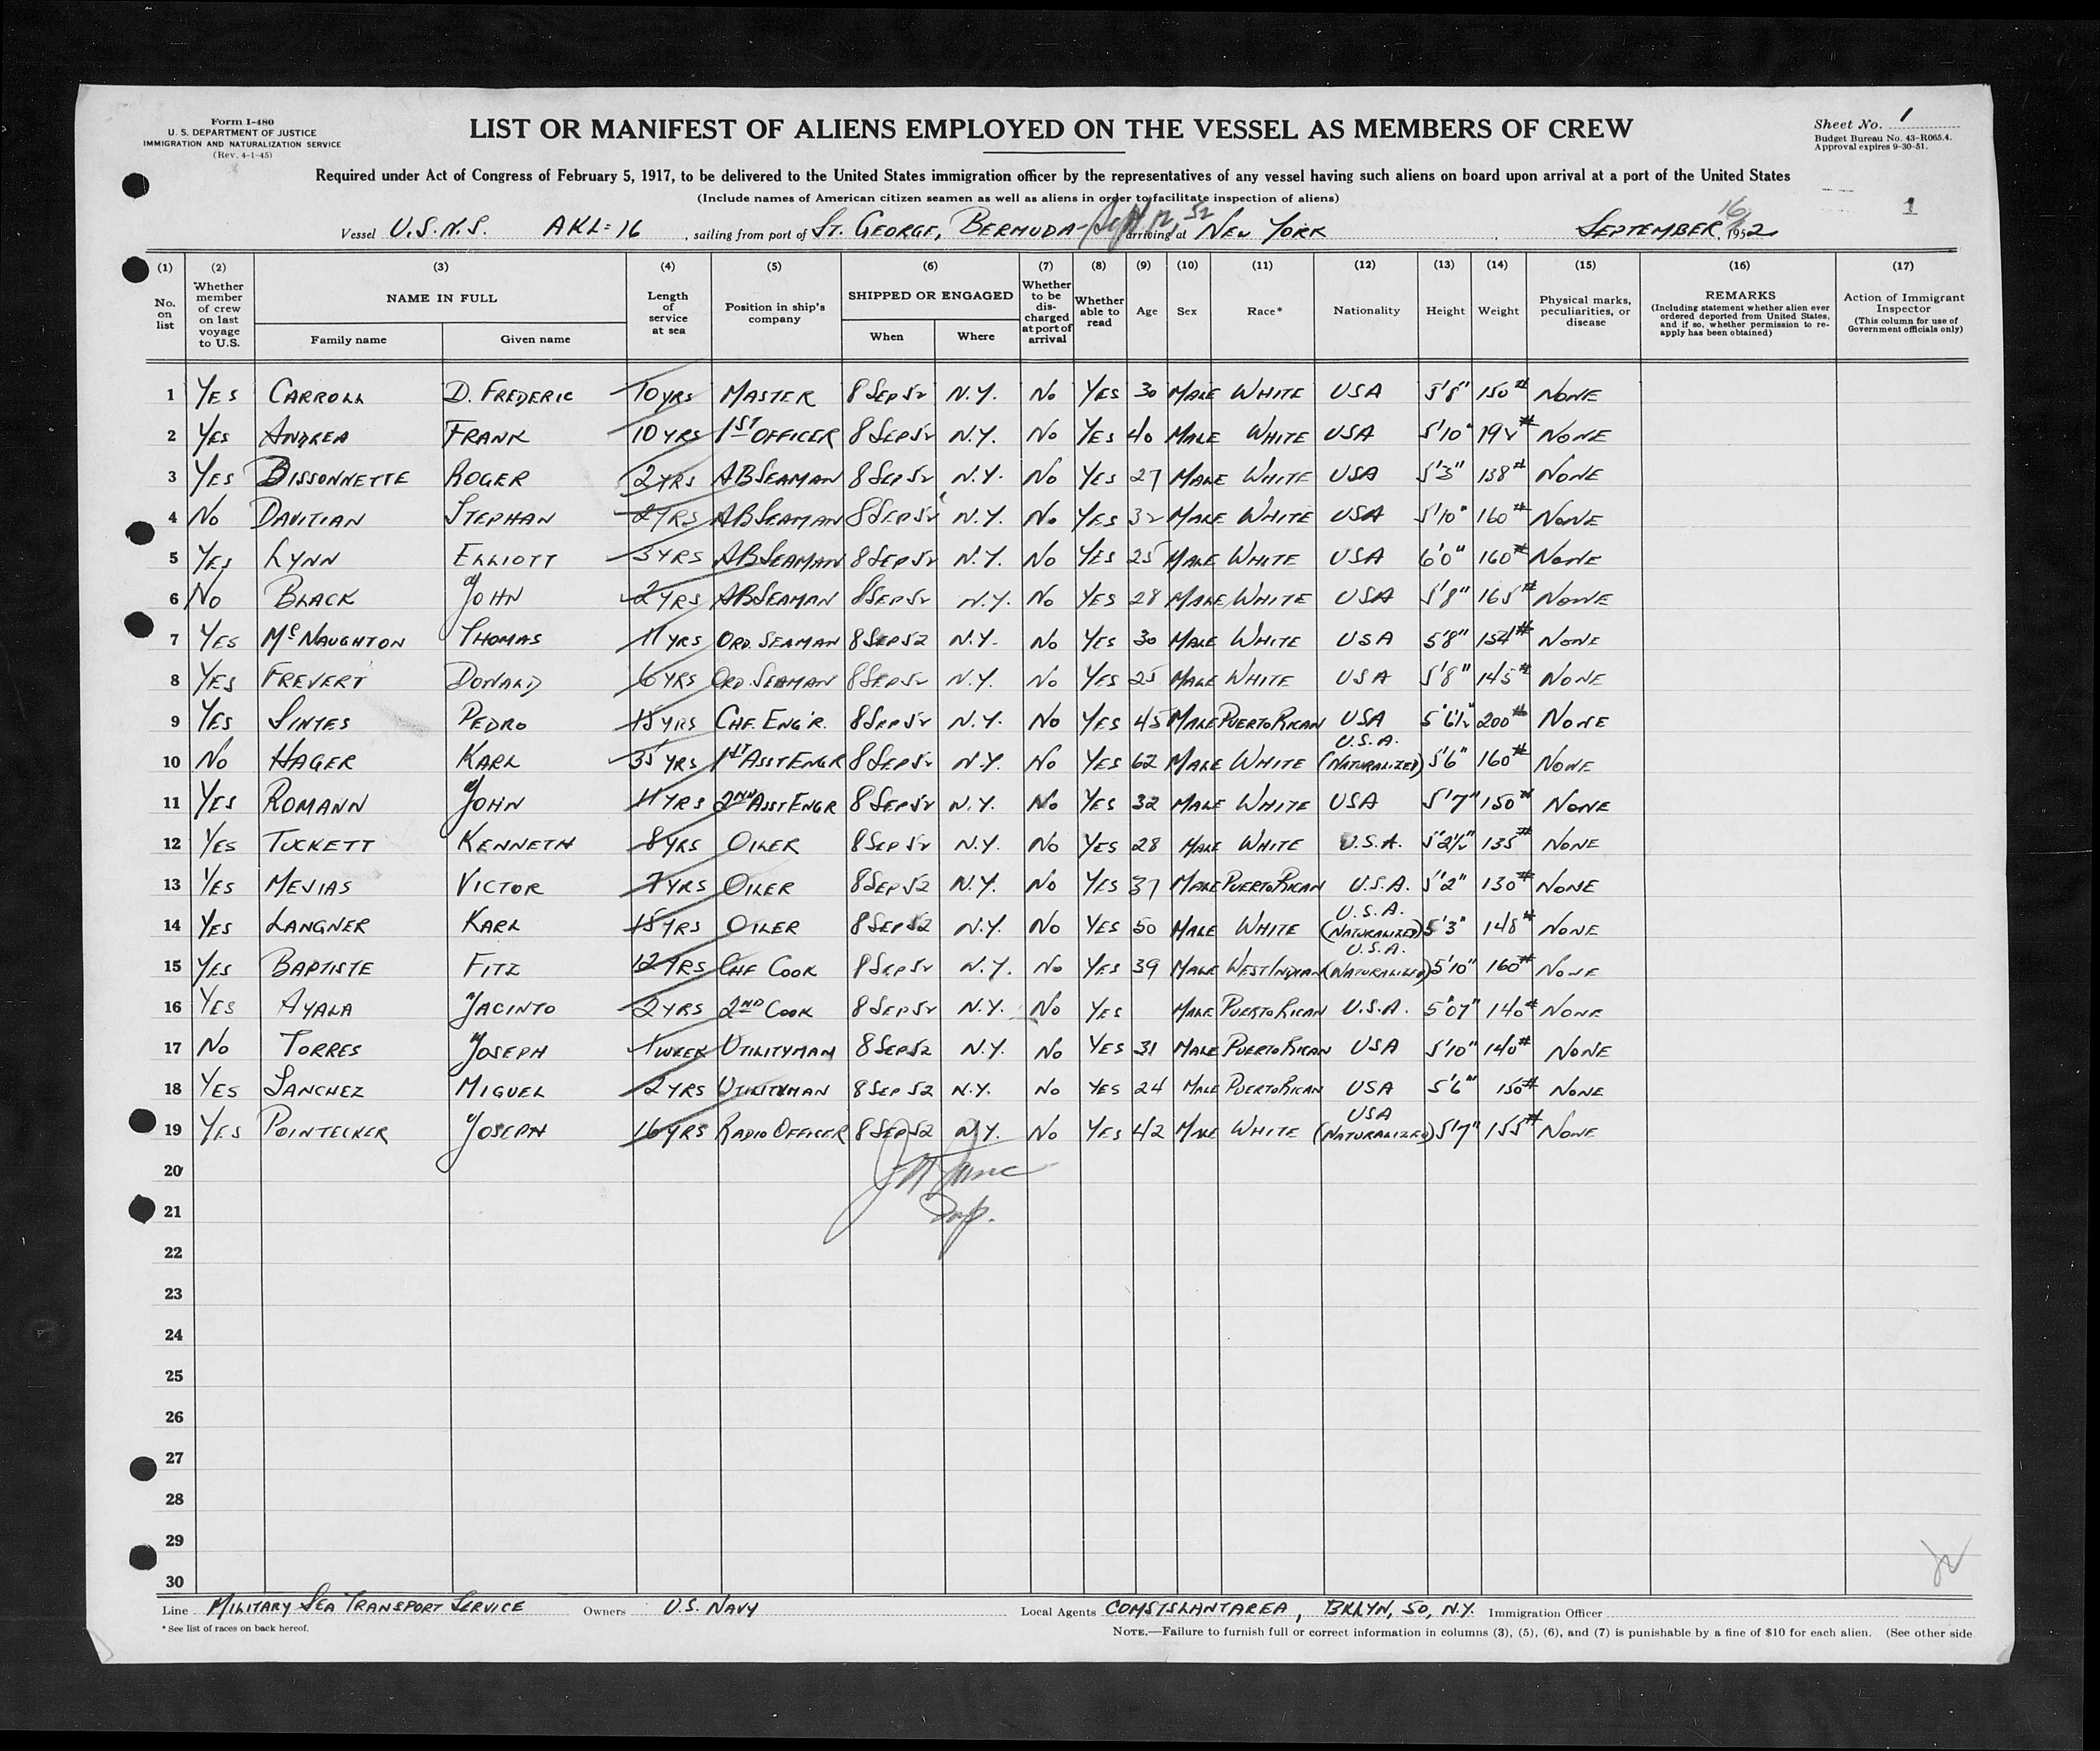 Form I-480
U. S. DEPARTMENT OF JUSTICE
IMMIGRATION AND NATURALIZATION SERVICE
(Rev. 4-1-45)
LIST OR MANIFEST OF ALIENS EMPLOYED ON THE VESSEL AS MEMBERS OF CREW
Sheet No. 1
Budget Bureau No. 43-R065.4.
Approval expires 9-30-51.
Required under Act of Congress of February 5, 1917, to be delivered to the United States immigration officer by the representatives of any vessel having such aliens on board upon arrival at a port of the United States
(Include names of American citizen seamen as well as aliens in order to facilitate inspection of aliens)
1
Vessel U.S.N.S. AKL-16, sailing from port of ST. GEORGE, BERMUDA - Sept 12, 52 arriving at NEW YORK, SEPTEMBER 16, 1952
(1) (2) (3) (4) (5) (6) (7) (8) (9) (10) (11) (12) (13) (14) (15) (16) (17)
No. on list
Whether member of crew on last voyage to U.S.
NAME IN FULL
Family name
Given name
Length of service at sea
Position in ship's company
SHIPPED OR ENGAGED
When
Where
Whether to be discharged at port of arrival
Whether able to read
Age
Sex
Race*
Nationality
Height
Weight
Physical marks, peculiarities, or disease
REMARKS
(Including statement whether alien ever ordered deported from United States, and if so, whether permission to reapply has been obtained)
Action of Immigrant Inspector
(This column for use of Government officials only)
1 YES CARROLL D. FREDERIC 10 YRS MASTER 8 SEP 52 N.Y. NO YES 30 MALE WHITE USA 5'8" 150# NONE
2 YES ANDREA FRANK 10 YRS 1ST OFFICER 8 SEP 52 N.Y. NO YES 40 MALE WHITE USA 5'10" 192# NONE
3 YES BISSONNETTE ROGER 2 YRS AB SEAMAN 8 SEP 52 N.Y. NO YES 27 MALE WHITE USA 5'3" 138# NONE
4 NO DAVITIAN STEPHAN 2 YRS AB SEAMAN 8 SEP 52 N.Y. NO YES 32 MALE WHITE USA 5'10" 160# NONE
5 YES LYNN ELLIOTT 3 YRS AB SEAMAN 8 SEP 52 N.Y. NO YES 25 MALE WHITE USA 6'0" 160# NONE
6 NO BLACK JOHN 2 YRS AB SEAMAN 8 SEP 52 N.Y. NO YES 28 MALE WHITE USA 5'8" 165# NONE
7 YES McNAUGHTON THOMAS 11 YRS ORD. SEAMAN 8 SEP 52 N.Y. NO YES 30 MALE WHITE USA 5'8" 154# NONE
8 YES FREVERT DONALD 6 YRS ORD. SEAMAN 8 SEP 52 N.Y. NO YES 25 MALE WHITE USA 5'8" 145# NONE
9 YES SINTES PEDRO 15 YRS CHF. ENG'R. 8 SEP 52 N.Y. NO YES 45 MALE PUERTO RICAN USA 5'6½" 200# NONE
10 NO HAGER KARL 35 YRS 1ST ASST ENGR 8 SEP 52 N.Y. NO YES 62 MALE WHITE U.S.A. (NATURALIZED) 5'6" 160# NONE
11 YES ROMANN JOHN 11 YRS 2ND ASST ENGR 8 SEP 52 N.Y. NO YES 32 MALE WHITE USA 5'7" 150# NONE
12 YES TUCKETT KENNETH 8 YRS OILER 8 SEP 52 N.Y. NO YES 28 MALE WHITE U.S.A. 5'2½" 135# NONE
13 YES MEJIAS VICTOR 7 YRS OILER 8 SEP 52 N.Y. NO YES 37 MALE PUERTO RICAN U.S.A. 5'2" 130# NONE
14 YES LANGNER KARL 15 YRS OILER 8 SEP 52 N.Y. NO YES 50 MALE WHITE U.S.A. (NATURALIZED) 5'3" 148# NONE
15 YES BAPTISTE FITZ 12 YRS CHF COOK 8 SEP 52 N.Y. NO YES 39 MALE WEST INDIAN U.S.A. (NATURALIZED) 5'10" 160# NONE
16 YES AYALA JACINTO 2 YRS 2ND COOK 8 SEP 52 N.Y. NO YES MALE PUERTO RICAN U.S.A. 5'07" 140# NONE
17 NO TORRES JOSEPH 1 WEEK UTILITYMAN 8 SEP 52 N.Y. NO YES 31 MALE PUERTO RICAN USA 5'10" 140# NONE
18 YES SANCHEZ MIGUEL 2 YRS UTILITYMAN 8 SEP 52 N.Y. NO YES 24 MALE PUERTO RICAN USA 5'6" 150# NONE
19 YES POINTECKER JOSEPH 16 YRS RADIO OFFICER 8 SEP 52 N.Y. NO YES 42 MALE WHITE USA (NATURALIZED) 5'7" 155# NONE
20
21
22
23
24
25
26
27
28
29
30
Line MILITARY SEA TRANSPORT SERVICE Owners U.S. NAVY Local Agents COMSTSLANTAREA, BKLYN, 50, N.Y. Immigration Officer
* See list of races on back hereof.
NOTE.—Failure to furnish full or correct information in columns (3), (5), (6), and (7) is punishable by a fine of $10 for each alien. (See other side